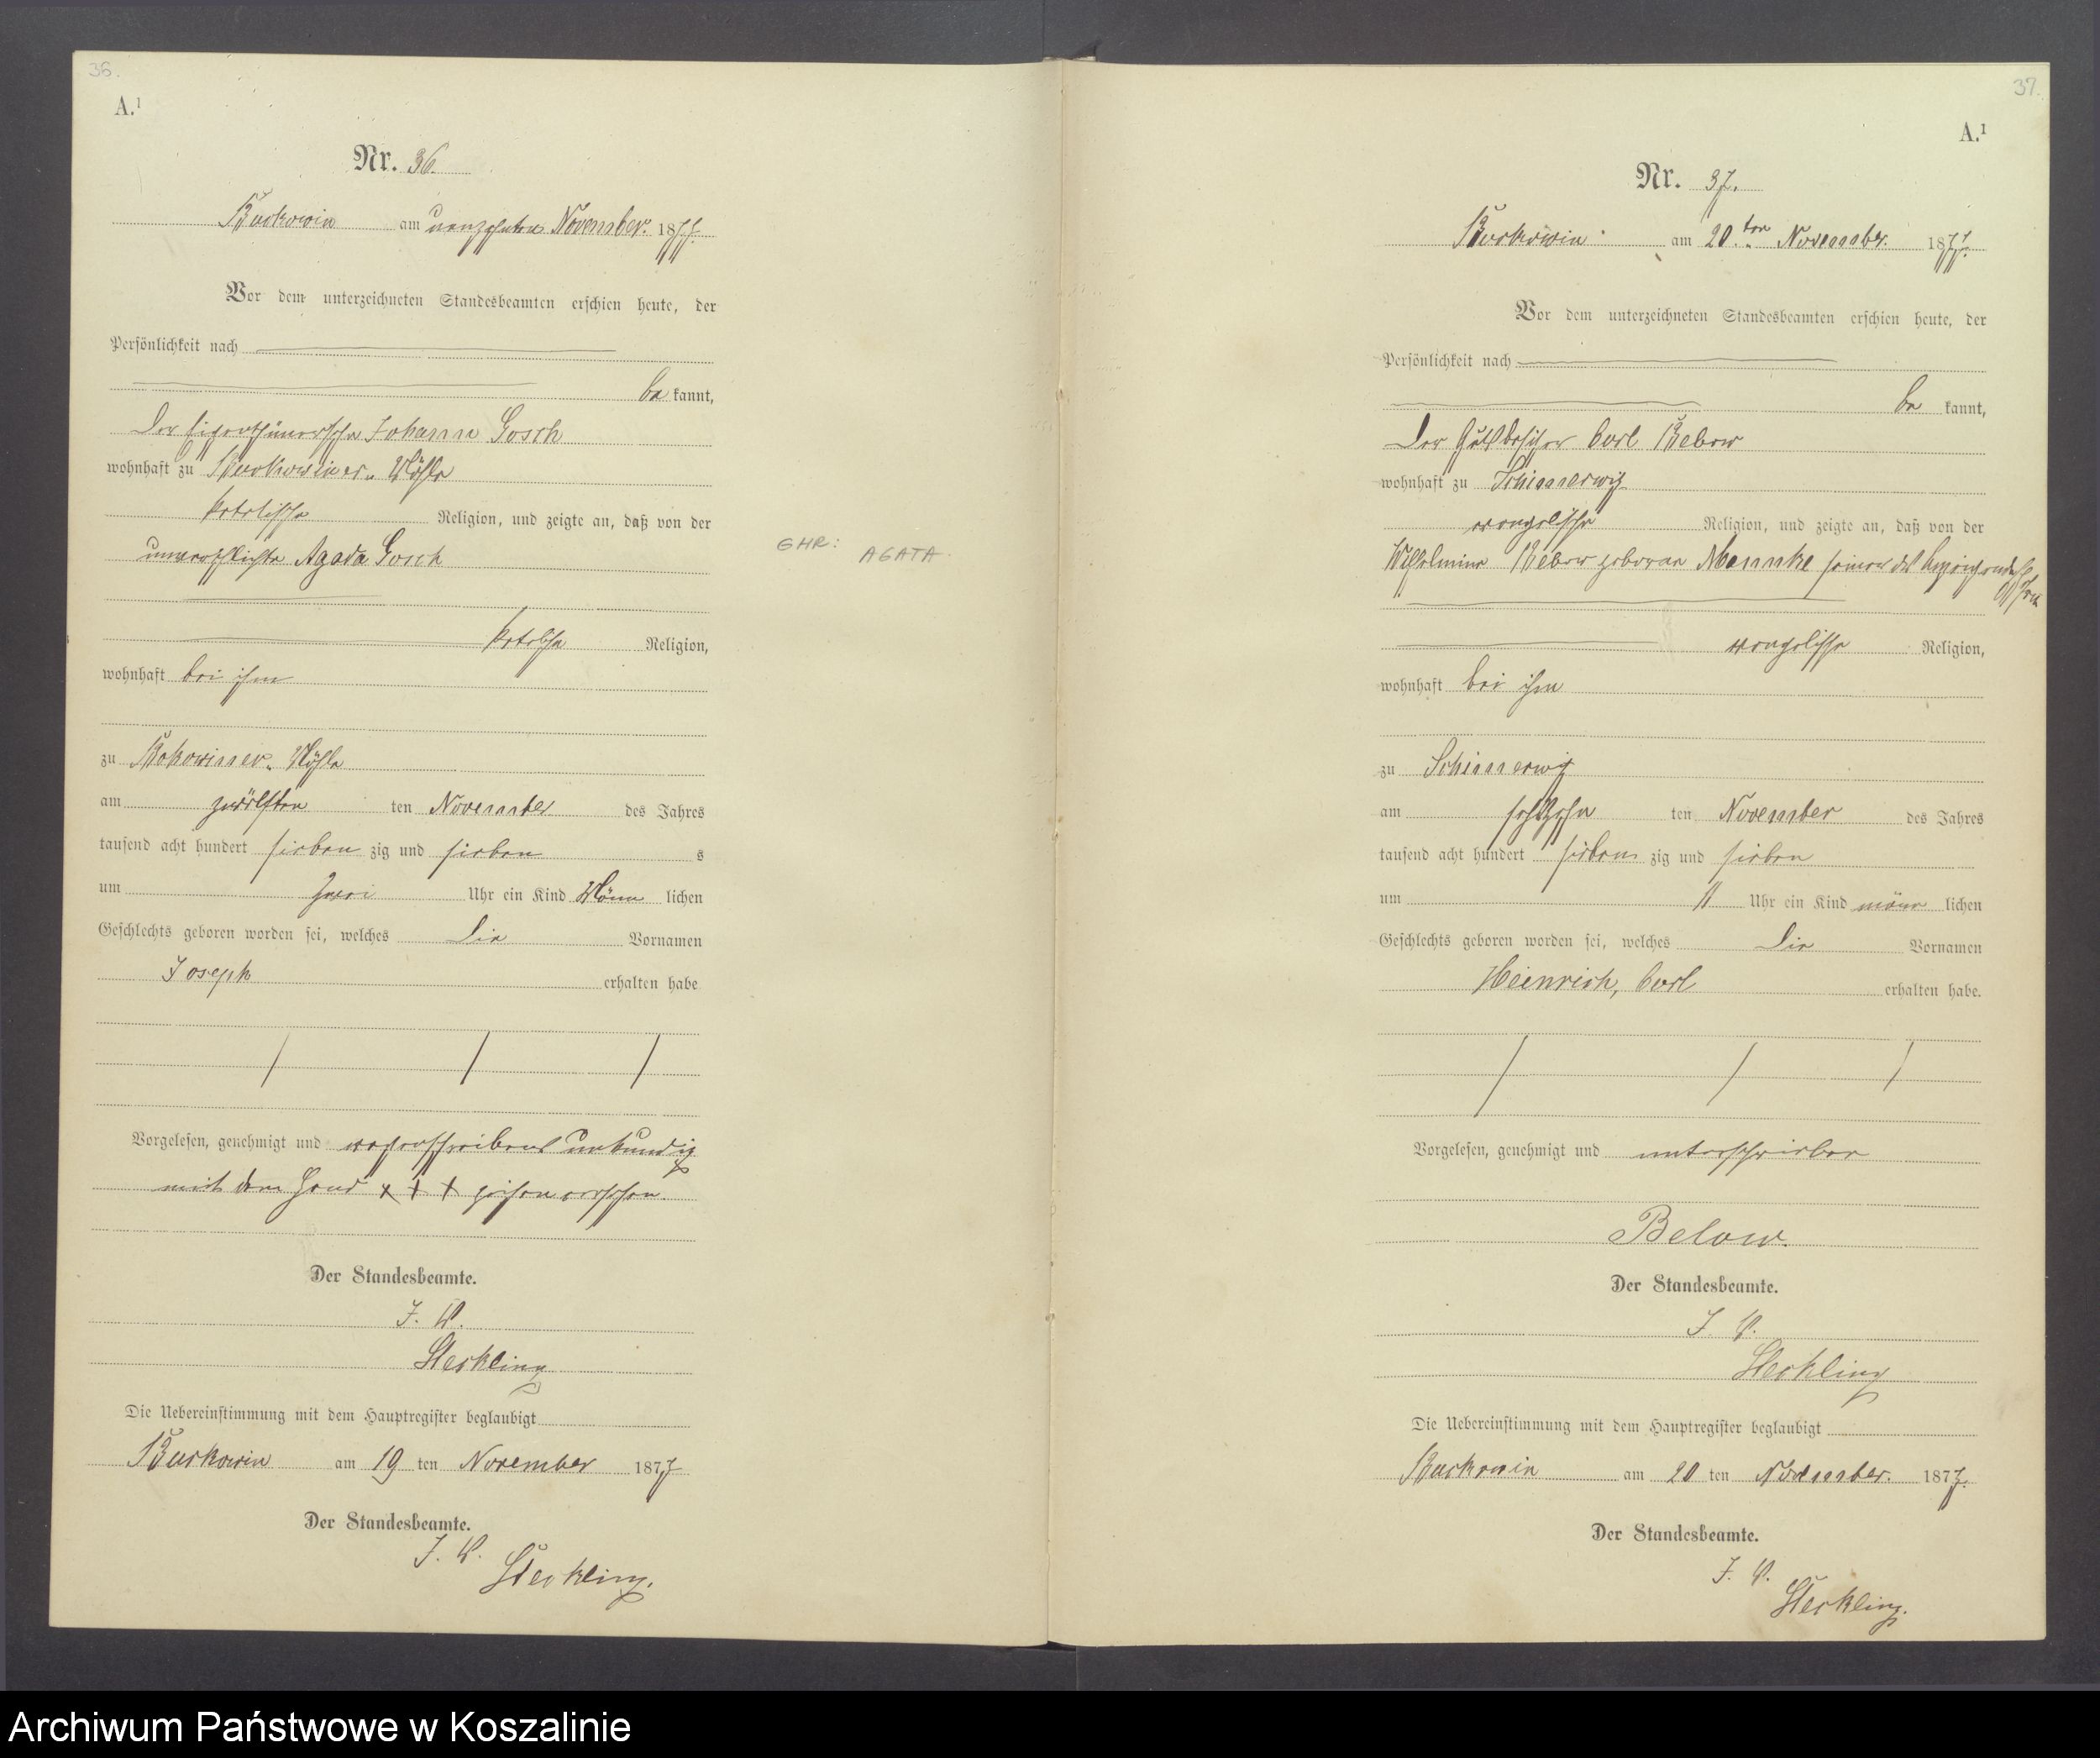 36.
A.¹
Nr. 36.
Buckowin am neunzehnten November 1877.
Vor dem unterzeichneten Standesbeamten erschien heute, der
Persönlichkeit nach
be kannt,
Der Johann Gosch
wohnhaft zu Buckowiner-
katolische Religion, und zeigte an, daß von der
unverehlichte Agada Gosch
katolische Religion,
wohnhaft bei ihm
zu Bukowiner-
am zwölften ten November des Jahres
tausend acht hundert sieben zig und sieben s
um zwei Uhr ein Kind Männ lichen
Geschlechts geboren worden sei, welches die Vornamen
Joseph erhalten habe
Vorgelesen, genehmigt und unkundig
mit dem Hand + + +
Der Standesbeamte.
J. V.
Steckling
Die Uebereinstimmung mit dem Hauptregister beglaubigt
Buckowin am 19 ten November 1877
Der Standesbeamte.
J. V.
Steckling.
GHR: AGATA
37.
A.¹
Nr. 37.
Buckowin am 20.ten November. 1877.
Vor dem unterzeichneten Standesbeamten erschien heute, der
Persönlichkeit nach
be kannt,
Der Gutsbesitzer Carl Below
wohnhaft zu Schimerwitz
evangelische Religion, und zeigte an, daß von der
Wilhelmine Below geborene Mannke seiner des
evangelische Religion,
wohnhaft bei ihm
zu Schimerwitz
am sechszehn ten November des Jahres
tausend acht hundert sieben zig und sieben
um 11 Uhr ein Kind männ lichen
Geschlechts geboren worden sei, welches die Vornamen
Heinrich, Carl erhalten habe.
Vorgelesen, genehmigt und unterschrieben
Below.
Der Standesbeamte.
J. V.
Steckling
Die Uebereinstimmung mit dem Hauptregister beglaubigt
Buckowin am 20 ten November. 1877.
Der Standesbeamte.
J. V.
Steckling.
Archiwum Państwowe w Koszalinie